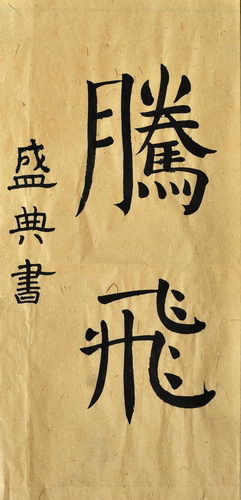 騰飛
盛典書